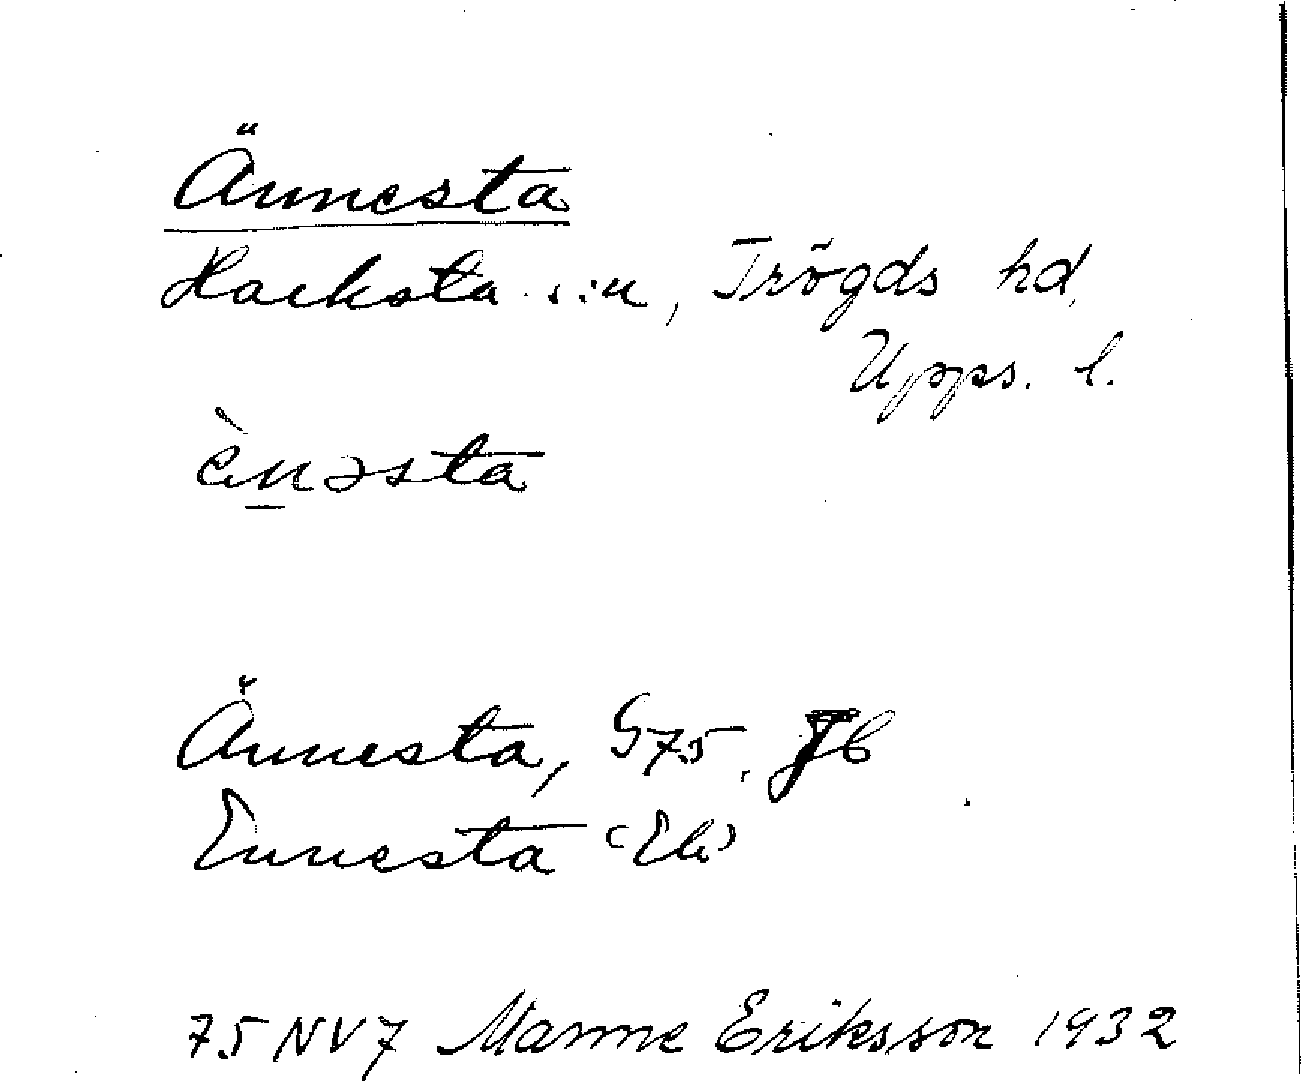 Ännesta
Hacksta s:n, Trögds hd,
Upps. l.
ènəsta
Ännesta, G75, Jb
Ennesta (Ek)
75 NV7 Manne Eriksson 1932